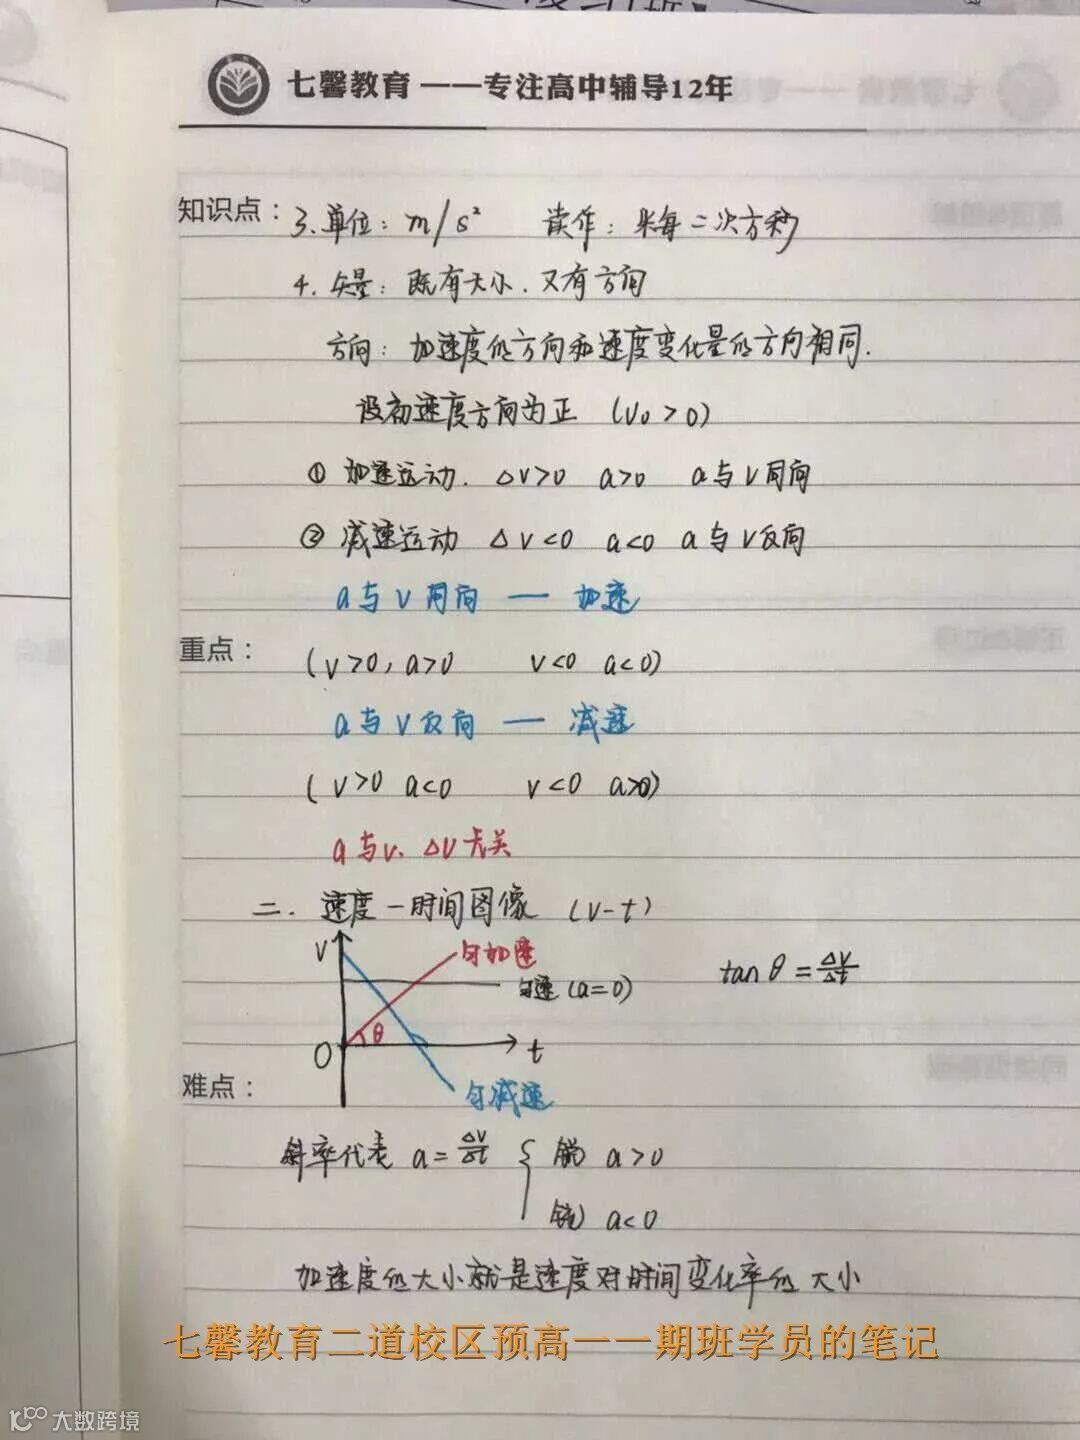 七馨教育 ——专注高中辅导12年
知识点：3. 单位：m/s² 读作：米每二次方秒
4. 矢量：既有大小．又有方向
方向：加速度的方向和速度变化量的方向相同．
设初速度方向为正 (V₀>0)
① 加速运动． ΔV>0 a>0 a与V同向
② 减速运动 ΔV<0 a<0 a与V反向
a与V同向 — 加速
重点：
(V>0, a>0 V<0 a<0)
a与V反向 — 减速
(V>0 a<0 V<0 a>0)
a与V、ΔV无关
二. 速度－时间图像 (V-t)
V
匀加速
tanθ=ΔV/Δt
匀速(a=0)
θ
O
t
难点：
匀减速
斜率代表 a=ΔV/Δt { 锐 a>0
钝 a<0
加速度的大小就是速度对时间变化率的大小
七馨教育二道校区预高一一期班学员的笔记
大数跨境